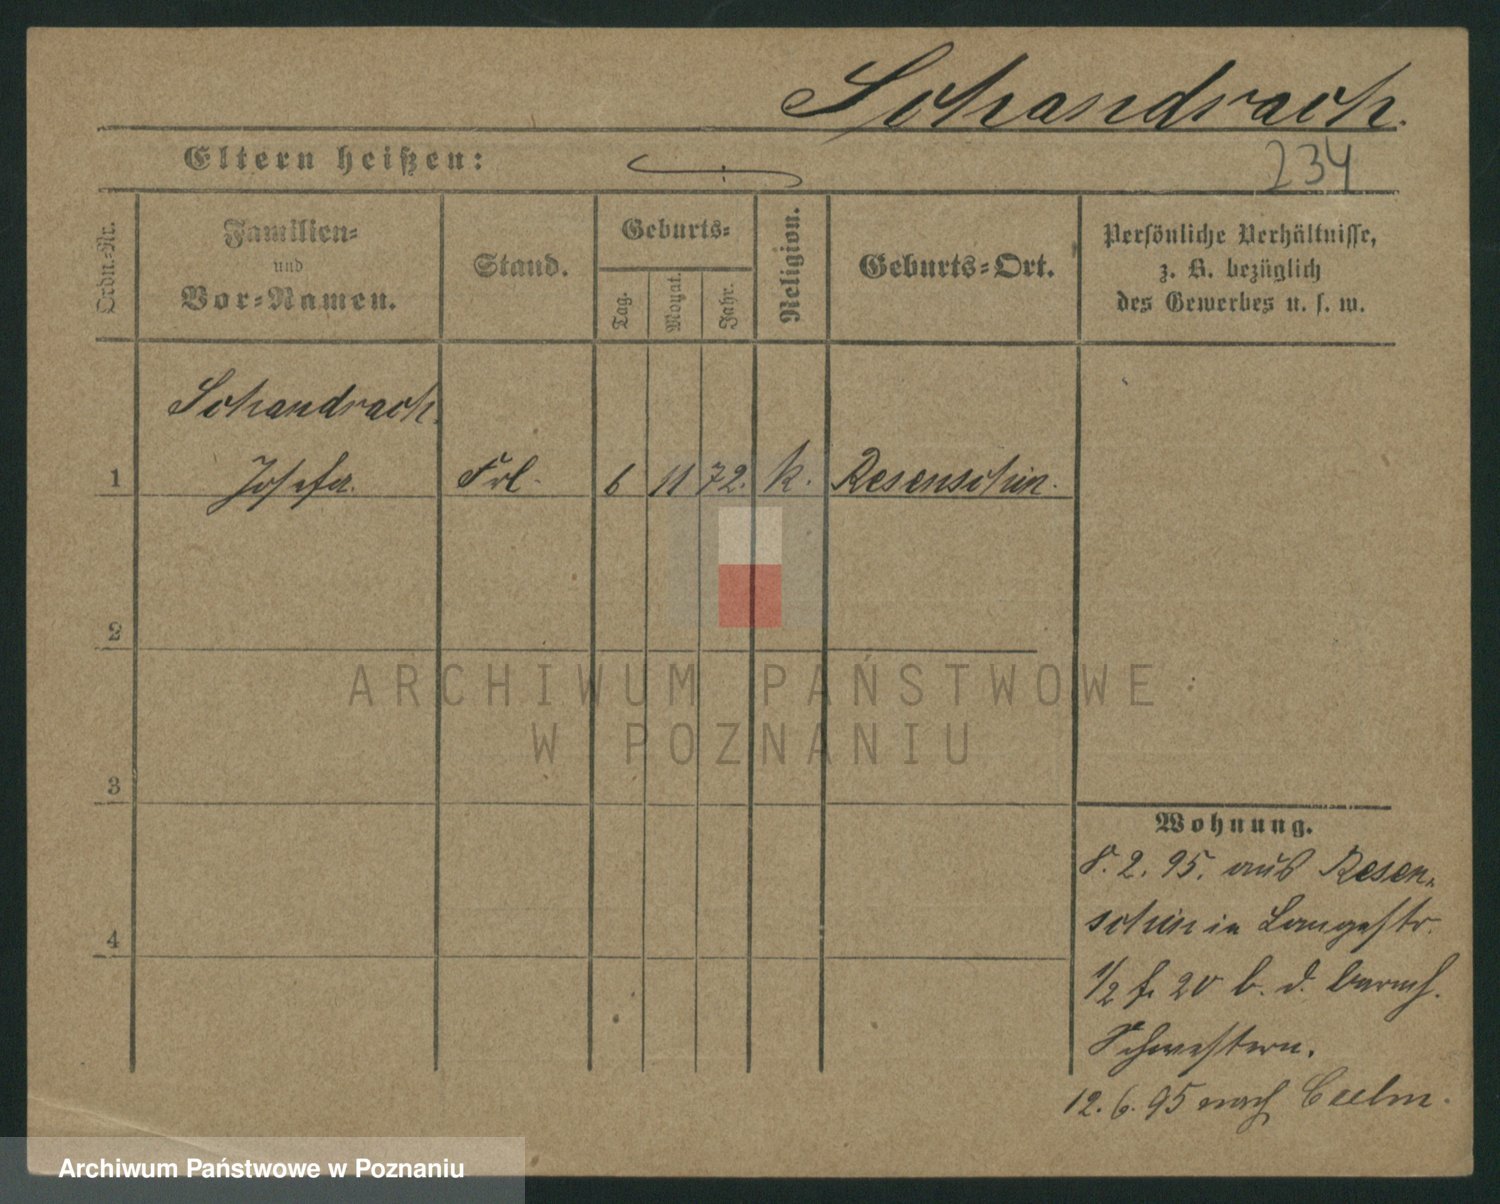 Schandrach.
Eltern heißen:
234
Ordn.-Nr.
Familien-
und
Vor-Namen.
Stand.
Geburts-
Tag.
Monat.
Jahr.
Religion.
Geburts-Ort.
Persönliche Verhältnisse,
z. B. bezüglich
des Gewerbes u. s. w.
Schandrach.
1 Josefa. Frl. 6 11 72. k. Resenschin.
2
3
4
Wohnung.
8. 2. 95. aus Resen-
schin in Langestr.
1/2 f. 20 b. d. barmh.
Schwestern.
12. 6. 95 nach Culm.
ARCHIWUM PAŃSTWOWE
W POZNANIU
Archiwum Państwowe w Poznaniu